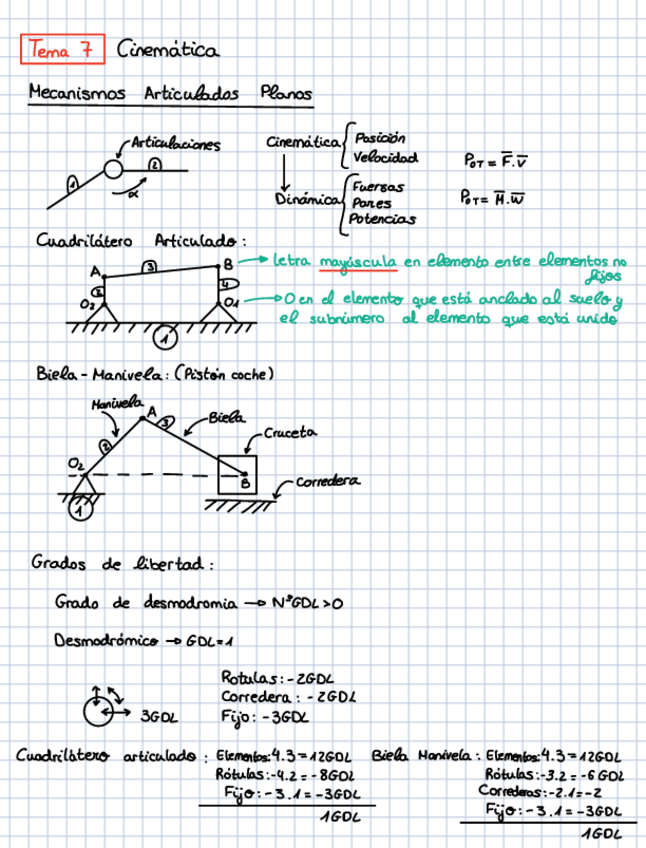 Tema 7 Cinemática
Mecanismos Articulados Planos
Articulaciones
1
2
α
Cinemática { Posición
Velocidad
Dinámica { Fuersas
Pares
Potencias
POT = F.V
POT = M.W
Cuadrilátero Articulado:
A
3
B → letra mayúscula en elemento entre elementos no
fijos
2
4
O2
O4 → O en el elemento que está anclado al suelo y
el subnúmero al elemento que está unido
1
Biela - Manivela: (Pistón coche)
Manivela
A
3
Biela
Cruceta
2
O2
B
Corredera
1
Grados de libertad:
Grado de desmodromia → NºGDL > 0
Desmodrómico → GDL = 1
3GDL
Rotulas: -2GDL
Corredera: -2GDL
Fijo: -3GDL
Cuadrilátero articulado: Elementos: 4.3 = 12GDL
Rótulas: -4.2 = -8GDL
Fijo: -3.1 = -3GDL
1GDL
Biela Manivela: Elementos: 4.3 = 12GDL
Rótulas: -3.2 = -6GDL
Correderas: -2.1 = -2
Fijo: -3.1 = -3GDL
1GDL